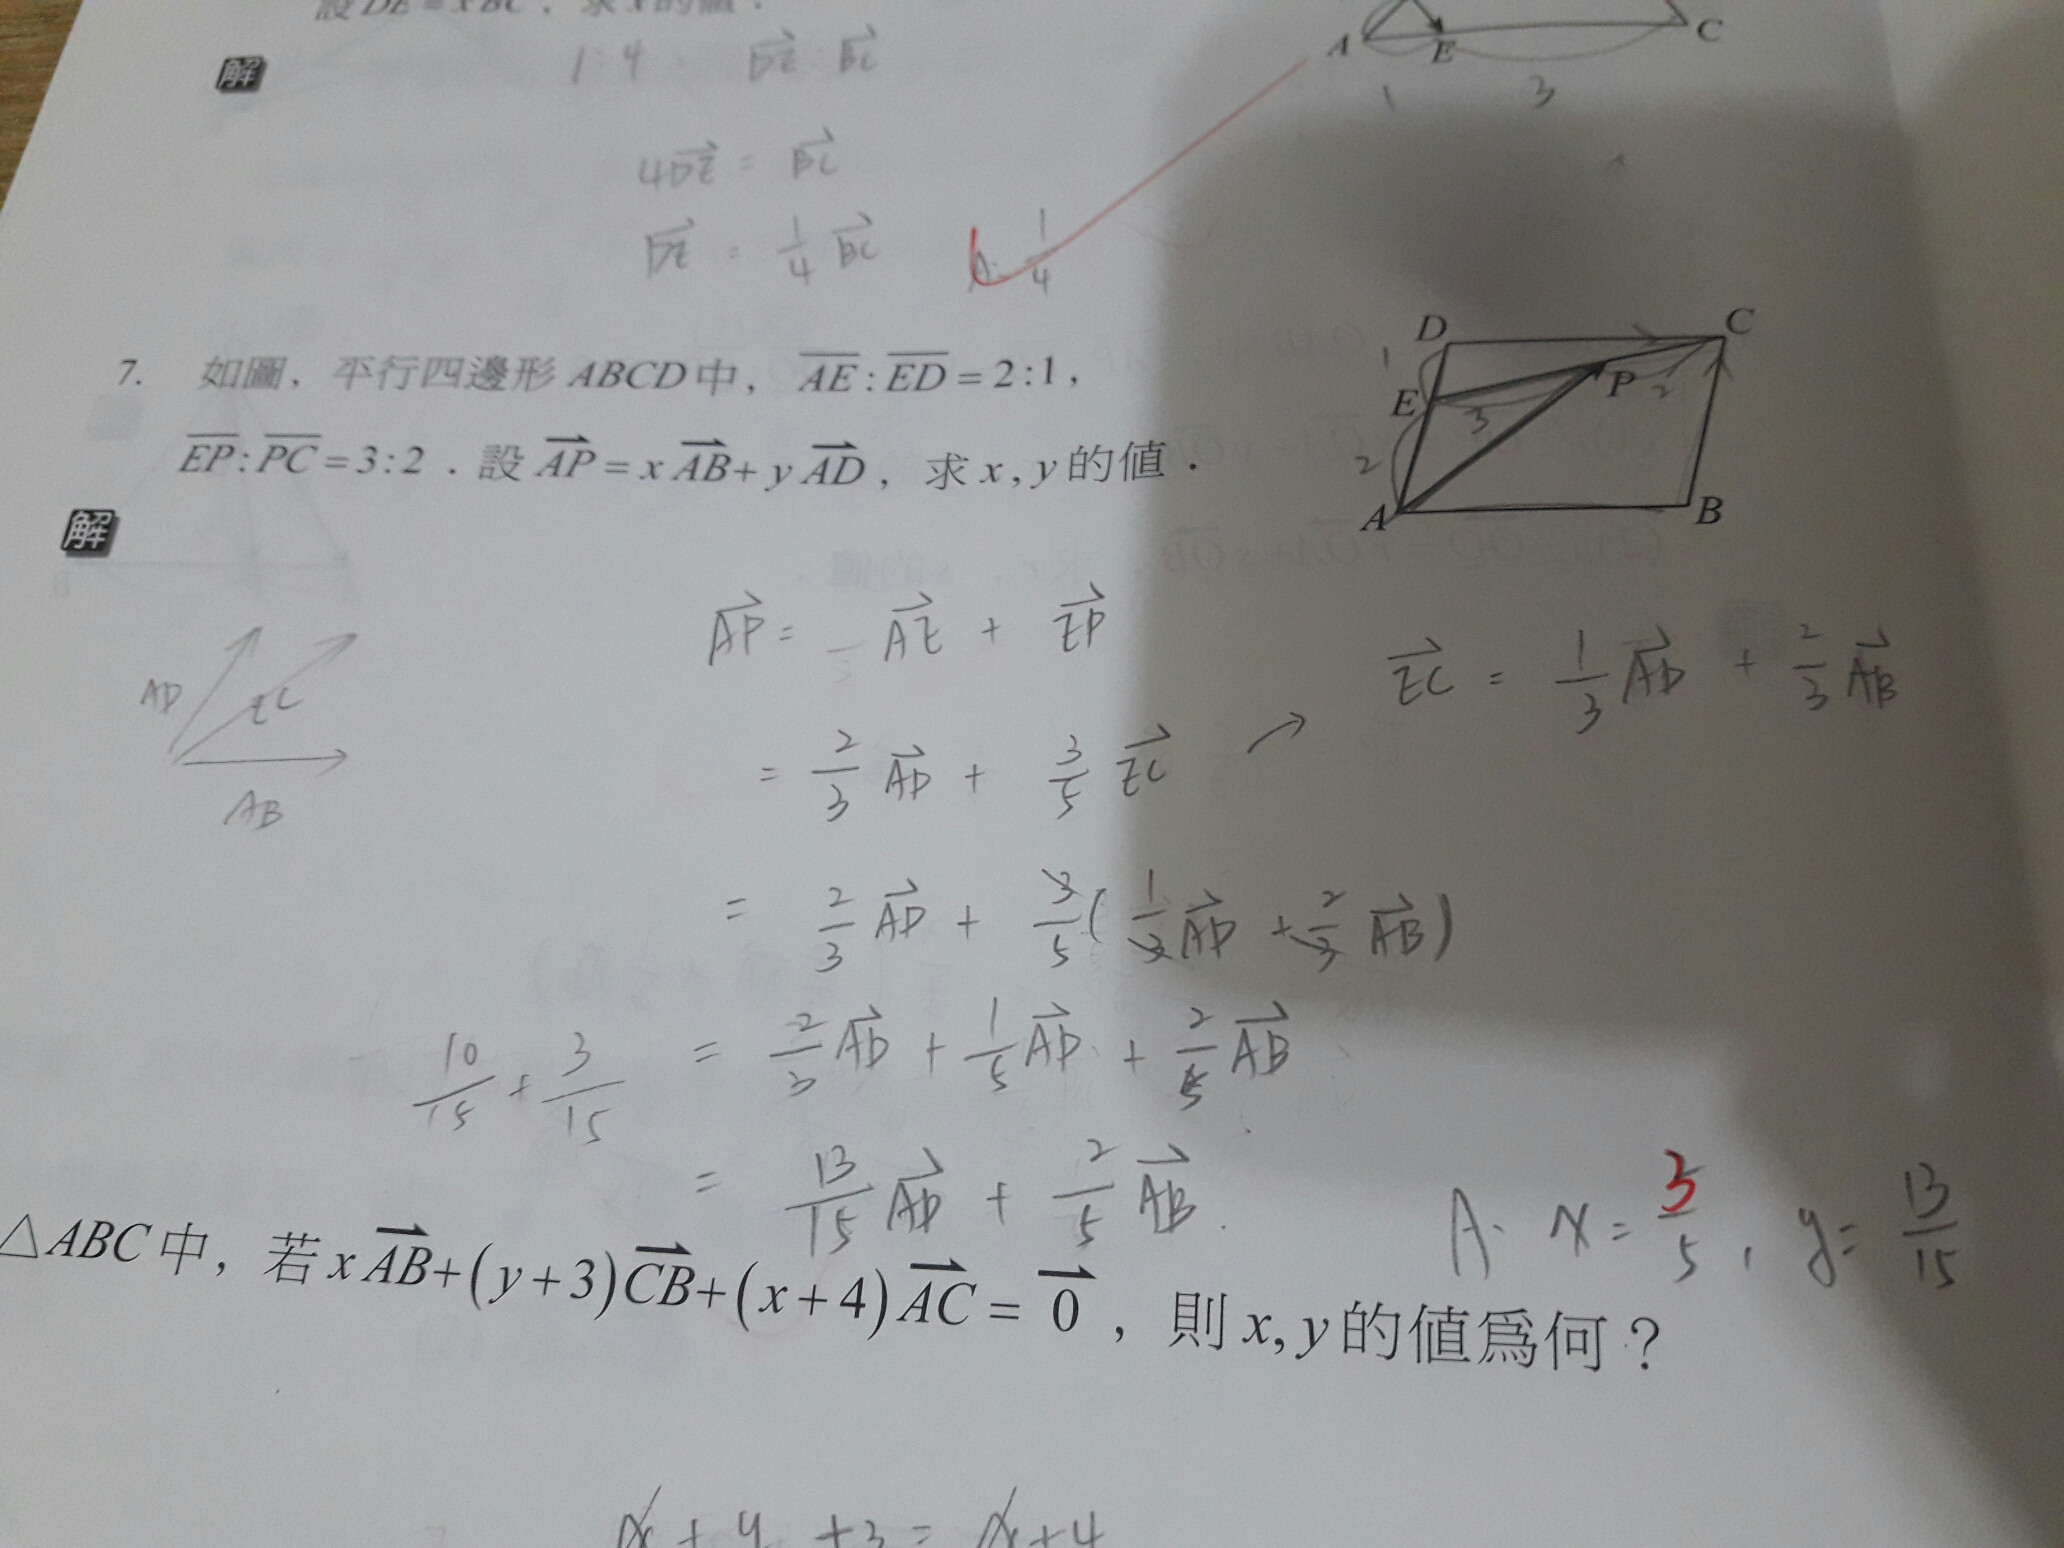 設 DE = x BC，求 x 的值．
A E C
1 3
解
1:4 . DE : BC
4DE = BC
DE = 1/4 BC A. 1/4
7. 如圖，平行四邊形 ABCD 中，AE : ED = 2 : 1，
EP : PC = 3 : 2．設 AP = x AB + y AD，求 x, y 的值．
D C
1 E 3 P 2
2 A B
解
AD EC
AB
AP = AE + EP
= 2/3 AD + 3/5 EC → EC = 1/3 AD + 2/3 AB
= 2/3 AD + 3/5 ( 1/3 AD + 2/3 AB )
10/15 + 3/15 = 2/3 AD + 1/5 AD + 2/5 AB
= 13/15 AD + 2/5 AB .
A. x = 3/5 , y = 13/15
△ABC 中，若 x AB + (y + 3) CB + (x + 4) AC = 0，則 x, y 的值爲何？
x + y + 3 = x + 4